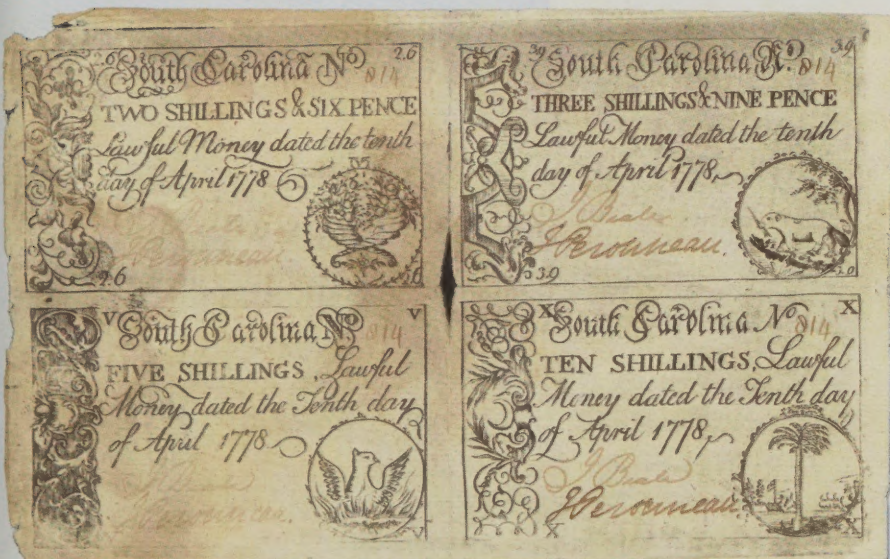 South Carolina No 814 2.6
TWO SHILLINGS & SIX PENCE
Lawful Money dated the tenth
day of April 1778
Peronneau
2.6
3.9 South Carolina No. 814 3.9
THREE SHILLINGS & NINE PENCE
Lawful Money dated the tenth
day of April 1778,
J Beale
J Peronneau.
3.9 3.9
V South Carolina No 814 V
FIVE SHILLINGS, Lawful
Money dated the Tenth day
of April 1778
Peronneau.
V
X South Carolina No 814 X
TEN SHILLINGS, Lawful
Money dated the Tenth day
of April 1778,
J Beale
J Peronneau
X X